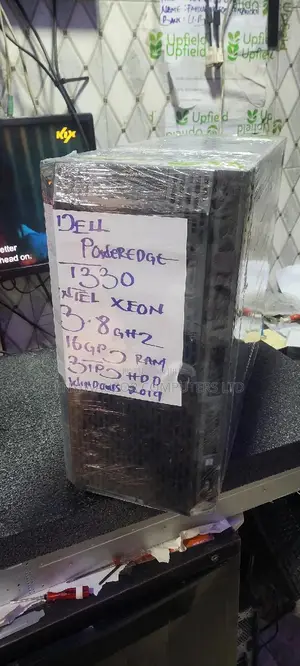 Upfield
Upfield
Upfield
Upfield
KIX
etter
head on.
DELL
POWEREDGE
T330
INTEL XEON
3.8GHZ
16GB RAM
3TB HDD
WINDOWS 2019
COMPUTERS LTD